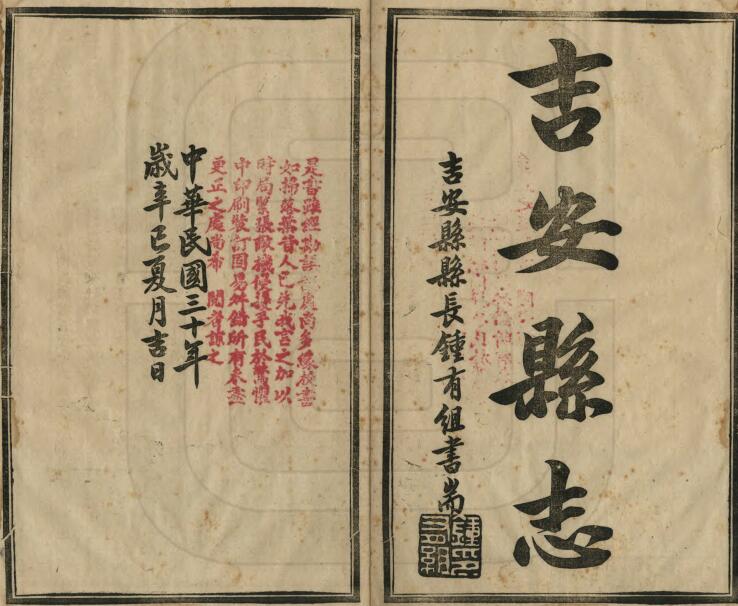 吉安縣志
吉安縣縣長鍾有組書耑
鍾有組
是書雖經勘誤處尚多緣校書
如掃落葉昔人已先我言之加以
時局緊張敵機侵擾手民於驚懼
中印刷裝訂固易舛錯所有未盡
更正之處尚希 閱者諒之
中華民國三十年
歲辛巳夏月吉日